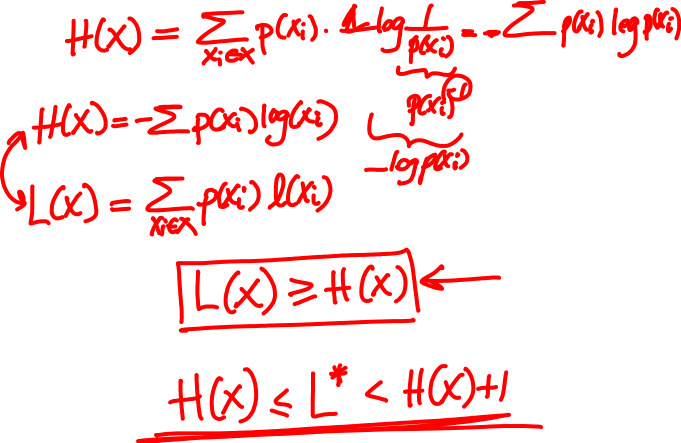 H(X) = ∑_{xᵢ∈x} p(xᵢ) · log 1/p(xᵢ) = -∑ p(xᵢ) log p(xᵢ)
p(xᵢ)⁻¹
H(X) = -∑ p(xᵢ) log(xᵢ)
-log p(xᵢ)
L(X) = ∑_{xᵢ∈x} p(xᵢ) l(xᵢ)
L(X) ≥ H(X) ←
H(X) ≤ L* < H(X)+1